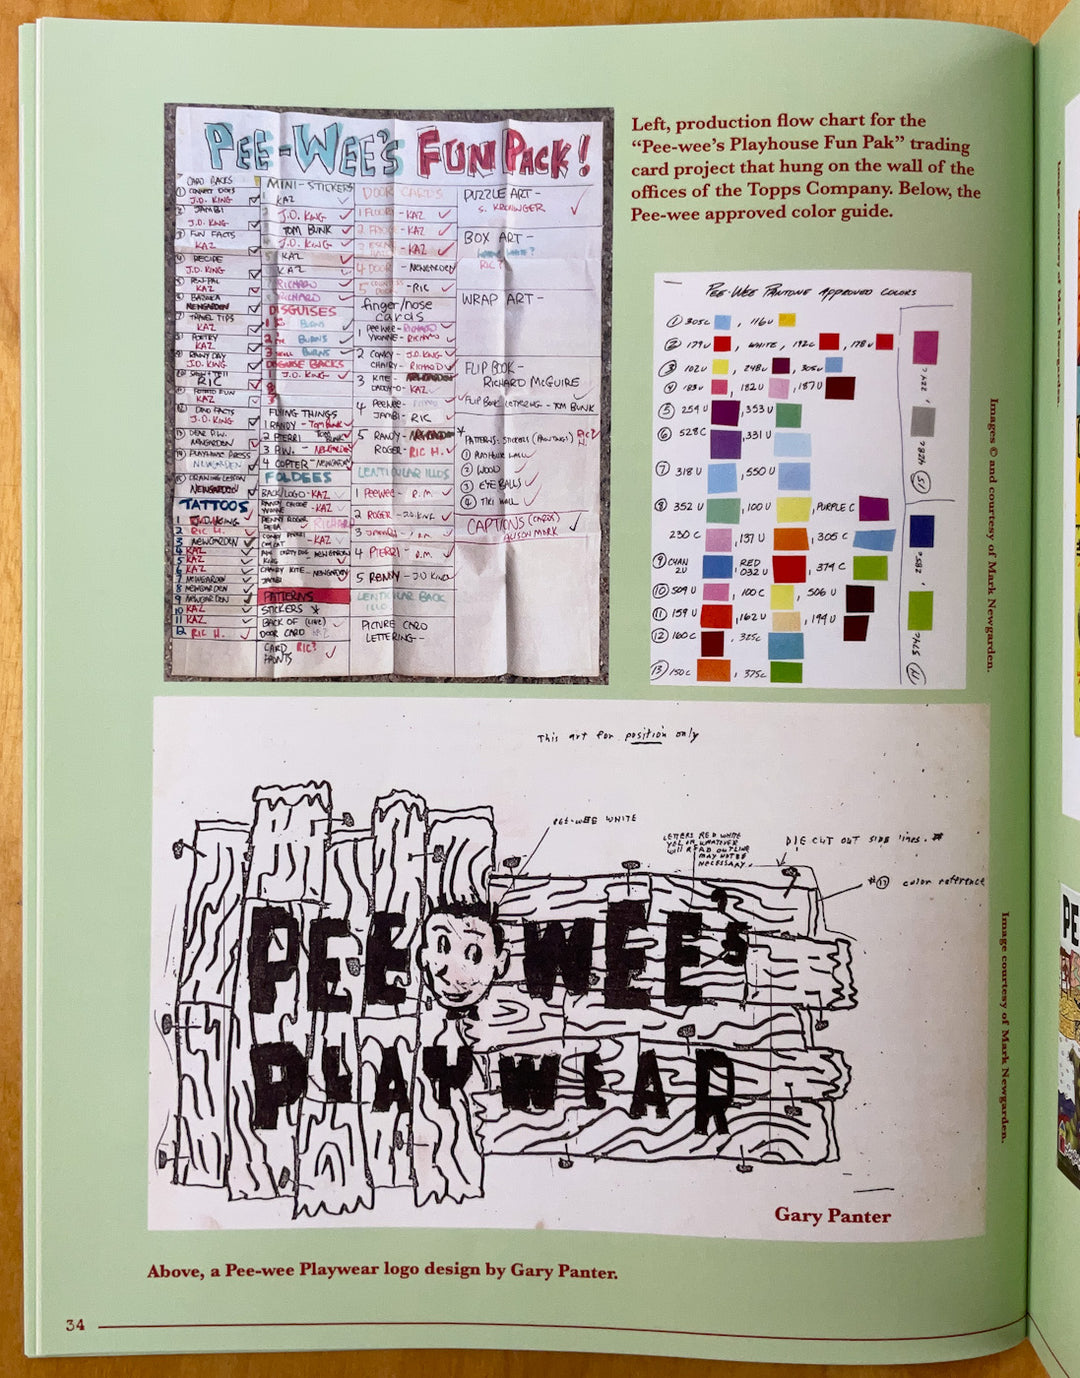 PEE-WEE'S FUN PACK!
CARD BACKS
① CONNECT DOTS
J.D. KING
② JAMBI
J.D. KING
③ FUN FACTS
KAZ
④ RECIPE
J.D. KING
⑤ PEN PAL
KAZ
⑥ BAZOOKA
NEWGARDEN
⑦ TRAVEL TIPS
KAZ
POETRY
KAZ
RAINY DAY
J.D. KING
RIC
POTATO FUN
KAZ
DINO FACTS
J.D. KING
DEAR P.W.
NEWGARDEN
PLAYHOUSE PRESS
NEWGARDEN
DRAWING LESSON
NEWGARDEN
TATTOOS
1 J.D. KING
2 RIC H.
3 NEWGARDEN
4 KAZ
5 KAZ
6 KAZ
7 NEWGARDEN
8 NEWGARDEN
9 NEWGARDEN
10 KAZ
11 KAZ
12 RIC H.
MINI-STICKERS
KAZ
J.D. KING
TOM BUNK
J.D. KING
KAZ
KAZ
RICHARD
RICHARD
DISGUISES
BURNS
BURNS
BURNS
DISGUISE BACKS
J.D. KING
FLYING THINGS
1 RANDY - TOM BUNK
2 PTERRI TOM BUNK
3 P.W. - NEWGARDEN
4 COPTER - NEWGARDEN
FOLDEES
BACK/LOGO - KAZ
PATTERNS
STICKERS
BACK OF (LINE)
DOOR CARD
CARD RIC?
FRONTS
DOOR CARDS
1 FLOOR - KAZ
2 - KAZ
- KAZ
4 DOOR - NEWGARDEN
5 - RIC
finger/nose
cards
1 PEEWEE - RICHARD
YVONNE - RICHARD
2 CONKY - J.D. KING
CHAIRY - RICHARD
3 KITE -
DADDY-O - KAZ
4 PEEWEE
JAMBI - RIC
5 RANDY -
ROGER - RIC H.
LENTICULAR ILLOS
1 PEEWEE - R.M.
2 ROGER - J.D. KING
3 JAMBI - R.M.
4 PTERRI - R.M.
5 RANDY - J.D. KING
LENTICULAR BACK
ILLO
PICTURE CARD
LETTERING -
PUZZLE ART -
S. KRONINGER
BOX ART -
RIC?
WRAP ART -
FLIP BOOK -
RICHARD MCGUIRE
FLIP BOOK LETTERING - TOM BUNK
PATTERNS: STICKERS (FRONTING) RIC? H.
②WOOD
③ EYE BALLS
④ TIKI WALL
CAPTIONS (CARDS)
ALISON MARK
Left, production flow chart for the
"Pee-wee's Playhouse Fun Pak" trading
card project that hung on the wall of the
offices of the Topps Company. Below, the
Pee-wee approved color guide.
PEE-WEE PANTONE APPROVED COLORS
① 305C , 116U
② 179U , WHITE, 192C , 178U
③ 102U , 248U , 305U
④ 183U , 182U , 187U
⑤ 254U , 353U
⑥ 528C , 331U
⑦ 318U , 550U
⑧ 352U , 100U , PURPLE C
230C , 137U , 305C
⑨ CYAN 2U , RED 032U , 374C
⑩ 509U , 100C , 506U
⑪ 159U , 162U , 194U
⑫ 160C , 325C
⑬ 150C , 375C
Images © and courtesy of Mark Newgarden.
This art for position only
PEE-WEE WHITE
LETTERS RED WHITE
YEL OR WHATEVER
WILL READ OUTLINE
MAY NOT BE
NECESSARY.
DIE CUT OUT SIDE lines. *
#17 color reference
PEE WEE'S
PLAYWEAR
Gary Panter
Image courtesy of Mark Newgarden.
Above, a Pee-wee Playwear logo design by Gary Panter.
34